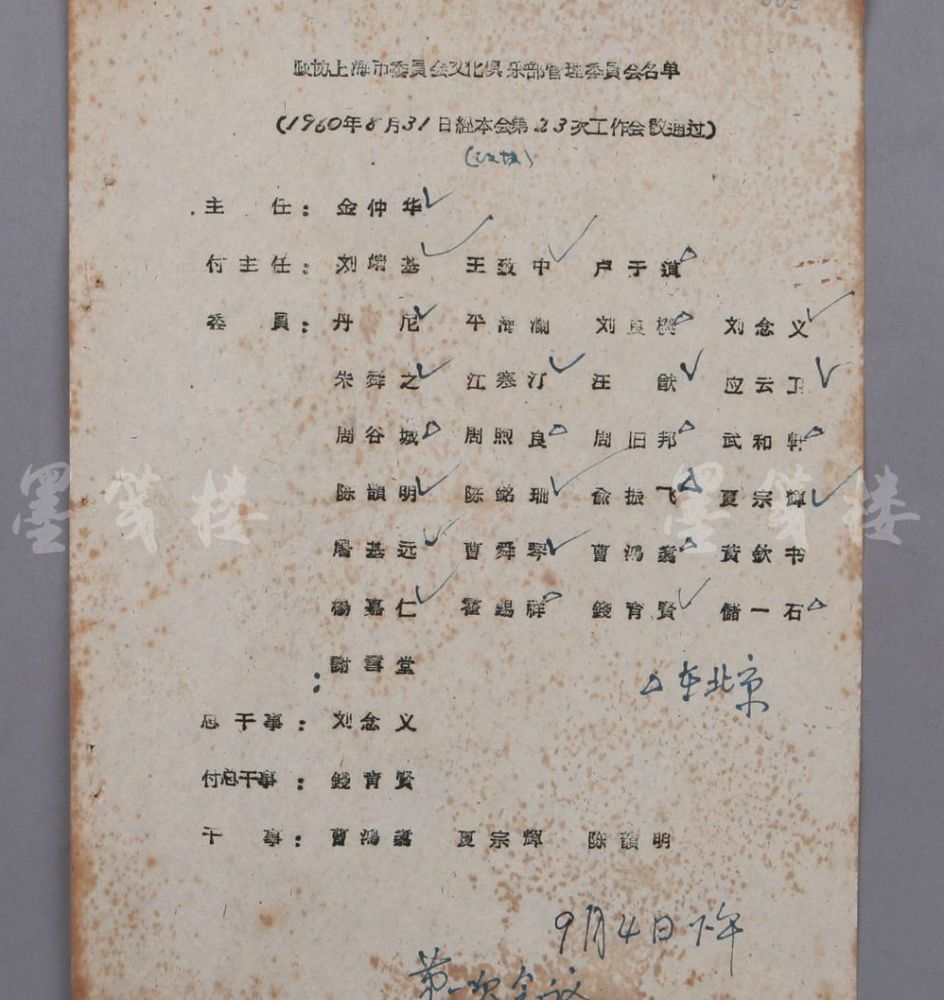 政协上海市委員会文化俱乐部管理委員会名单
(1960年8月31日經本会第23次工作会議通过)
主 任: 金仲华
付主任: 刘靖基 王致中 卢于道
委 員: 丹尼 平海瀾 刘念义
朱舜之 江寒汀 汪猷 应云卫
周谷城 周煦良 周旧邦 武和軒
陈韻明 陈铭珊 俞振飞 夏宗輝
屠基远 曹舜琴 曹鴻翥 黄欽书
楊嘉仁 霍錫祥 錢育賢 儲一石
謝雪堂
△在北京
总干事: 刘念义
付总干事: 錢育賢
干 事: 曹鴻翥 夏宗輝 陈韻明
9月4日下午
第一次会议
墨笺楼 墨笺楼